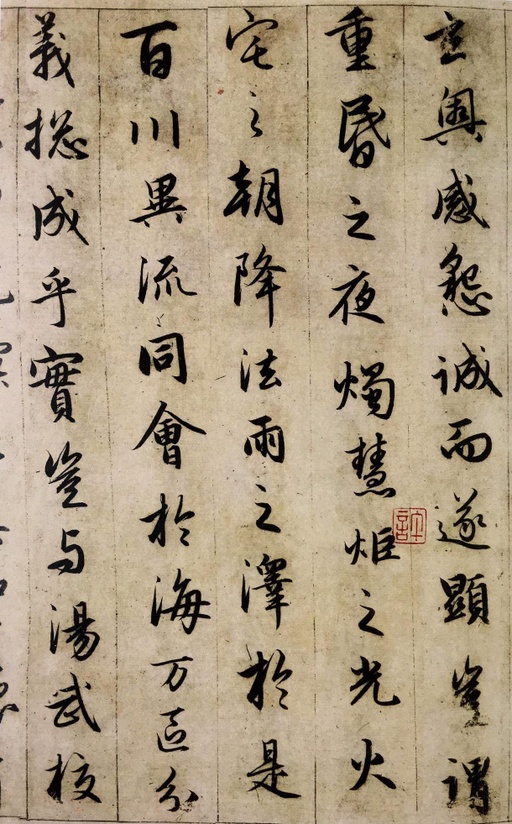 玄奥感懇誠而遂顯豈謂
重昬之夜燭慧炬之光火
宅之朝降法雨之澤於是
百川異流同會於海万區分
義揔成乎實豈与湯武校